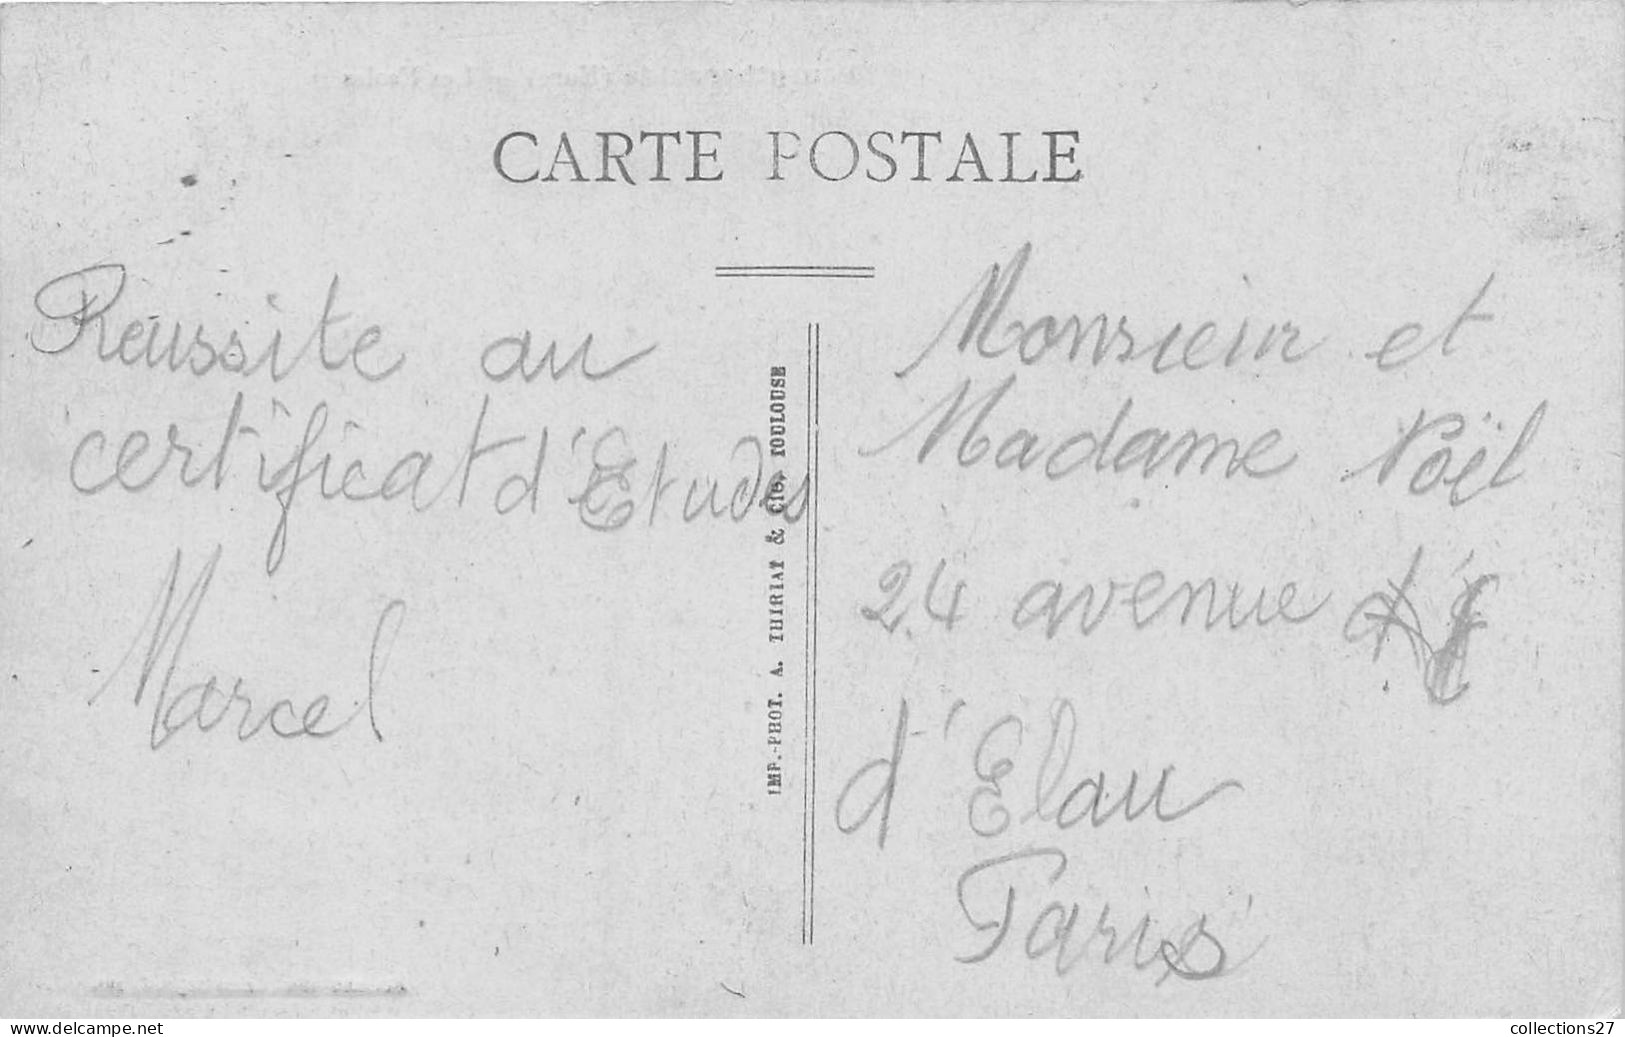 CARTE POSTALE
Réussite au
certificat d'Etudes
Marcel
IMP.-PHOT. A. THIRIAT & Cie. TOULOUSE
Monsieur et
Madame Noël
24 avenue
d'Elau
Paris
www.delcampe.net
collections27